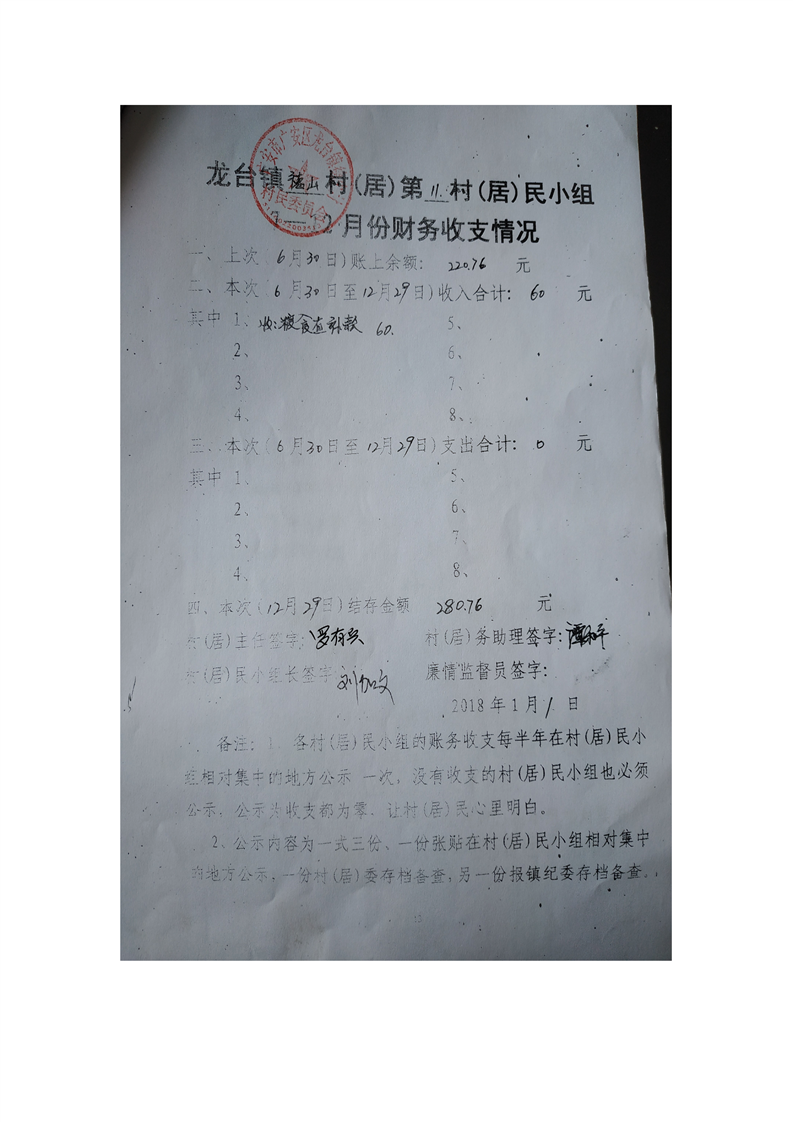 龙台镇 山村(居)第11村(居)民小组
月份财务收支情况
一、上次(6月30日)账上余额: 220.76 元
二、本次(6月30日至12月29日)收入合计: 60 元
其中 1、收:粮食直补款 60. 5、
2、 6、
3、 7、
4、 8、
三、本次(6月30日至12月29日)支出合计: 0 元
其中 1、 5、
2、 6、
3、 7、
4、 8、
四、本次(12月29日)结存金额 280.76 元
村(居)主任签字:罗有兴 村(居)务助理签字:
村(居)民小组长签字: 廉情监督员签字:
2018年1月1日
备注:1、各村(居)民小组的账务收支每半年在村(居)民小
组相对集中的地方公示一次,没有收支的村(居)民小组也必须
公示,公示为收支都为零,让村(居)民心里明白。
2、公示内容为一式三份、一份张贴在村(居)民小组相对集中
的地方公示,一份村(居)委存档备查,另一份报镇纪委存档备查。